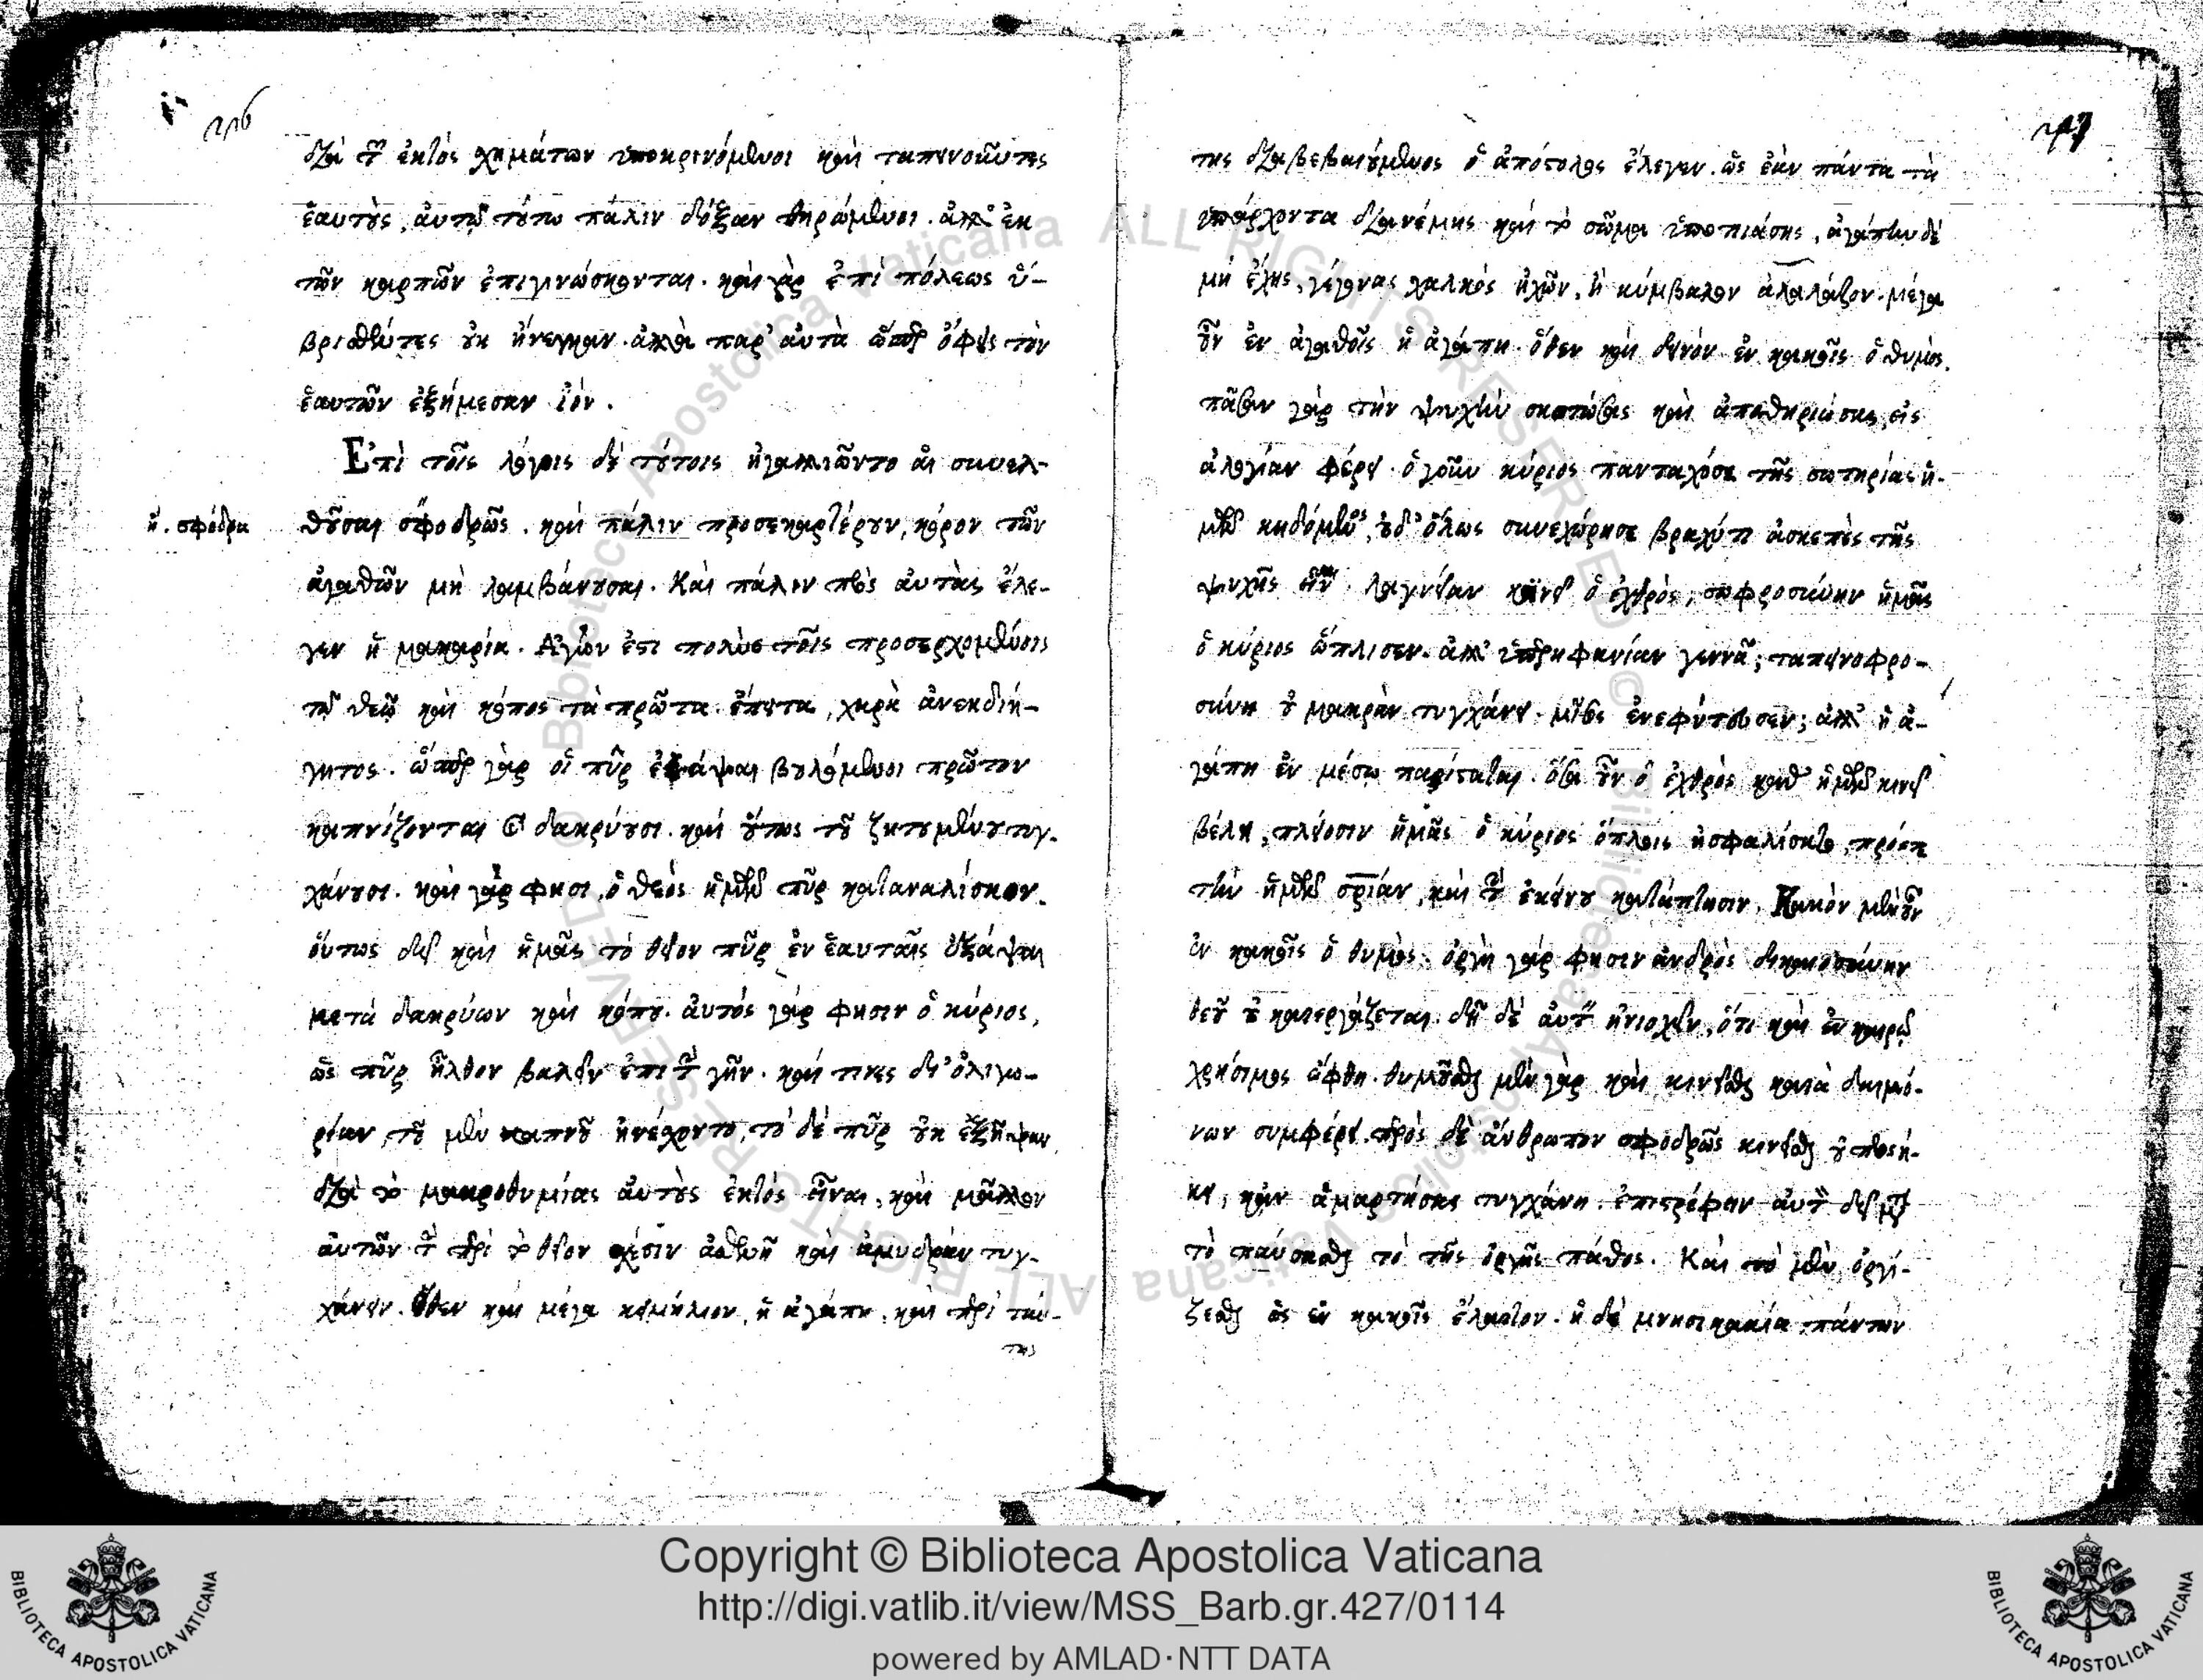 216
διὰ τῶν ἐκτὸς χημάτων ὑποκρινόμενοι καὶ ταπεινοῦντες
ἑαυτοὺς, αὐτῷ τούτω πάλιν δόξαν θηρώμενοι. ἀλλ' ἐκ
τῶν καρπῶν ἐπιγινώσκονται. καὶ γὰρ ἐπὶ πόλεως ὑ-
βρισθέντες οὐκ ἤνεγκαν. ἀλλὰ παρ' αὐτὰ ὥσπερ ὄφεις τὸν
ἑαυτῶν ἐξήμεσαν ἰόν.
Ἐπὶ τοῖς λόγοις δὲ τούτοις ἠγαλλιῶντο αἱ συνελ-
ἢ. σφόδρα
θοῦσαι σφοδρῶς. καὶ πάλιν προσεκαρτέρουν, κόρον τῶν
ἀγαθῶν μὴ λαμβάνουσαι. Καὶ πάλιν πρὸς αὐτὰς ἔλε-
γεν ἡ μακαρία. Ἀγών ἐστι πολὺς τοῖς προσερχομένοις
τῷ θεῷ καὶ κόπος τὰ πρῶτα. ἔπειτα, χαρὰ ἀνεκδιή-
γητος. ὥσπερ γὰρ οἱ πῦρ ἐξάψαι βουλόμενοι πρῶτον
καπνίζονται καὶ δακρύουσι. καὶ οὕτως τοῦ ζητουμένου τυγ-
χάνουσι. καὶ γὰρ φησι, ὁ θεὸς ἡμῶν πῦρ καταναλίσκον.
οὕτως δεῖ καὶ ἡμᾶς τὸ θεῖον πῦρ ἐν ἑαυταῖς ἐξάψαι
μετὰ δακρύων καὶ κόπου. αὐτὸς γάρ φησιν ὁ κύριος,
ὡς πῦρ ἦλθον βαλεῖν ἐπὶ τὴν γῆν. καί τινες δι' ὀλιγω-
ρίαν, τοῦ μὲν καπνοῦ ἠνέχοντο, τὸ δὲ πῦρ οὐκ ἐξῆψαν,
διὰ τὸ μακροθυμίας αὐτοὺς ἐκτὸς εἶναι, καὶ μᾶλλον
αὐτῶν τὴν περὶ τὸ θεῖον σχέσιν ἀσθενῆ καὶ ἀμυδρὰν τυγ-
χάνειν. Ὅθεν καὶ μέγα κειμήλιον, ἡ ἀγάπη. καὶ περὶ ταύ-
της
της διαβεβαιούμενος ὁ ἀπόστολος ἔλεγεν. ὡς ἐὰν πάντα τὰ
ὑπάρχοντα διανέμης καὶ τὸ σῶμα ὑποπιάσης, ἀγάπην δὲ
μὴ ἔχης, γέγονας χαλκὸς ἠχῶν, ἢ κύμβαλον ἀλαλάζον. μέγα
οὖν ἐν ἀγαθοῖς ἡ ἀγάπη. ὅθεν καὶ δεινὸν ἐν κακοῖς ὁ θυμὸς.
πᾶσαν γὰρ τὴν ψυχὴν σκοτώσας καὶ ἀποθηριώσας, εἰς
ἀλογίαν φέρει. ὁ γοῦν κύριος πανταχόσε τῆς σωτηρίας ἡ-
μῶν κηδόμενος, οὐδ' ὅλως συνεχώρησε βραχύ τι ἀσκεπὲς τῆς
ψυχῆς εἶναι. λαγνείαν κινεῖ ὁ ἐχθρός; σωφροσύνην ἡμᾶς
ὁ κύριος ὥπλισεν. ἀλλ' ὑπερηφανίαν γεννᾷ; ταπεινοφρο-
σύνη οὐ μακρὰν τυγχάνει. μῖσος ἐνεφύτευσεν; ἀλλ' ἡ ἀ-
γάπη ἐν μέσω παρίσταται. ὅσα οὖν ὁ ἐχθρὸς καθ' ἡμῶν κινεῖ
βέλη, πλείοσιν ἡμᾶς ὁ κύριος ὅπλοις ἠσφαλίσατο, πρός τε
τὴν ἡμῶν σρίαν, καὶ τὴν ἐκείνου κατάπτωσιν. Κακὸν μὲν οὖν
ἐν κακοῖς ὁ θυμὸς. ὀργὴ γάρ φησιν ἀνδρὸς δικαιοσύνην
θεοῦ οὐ κατεργάζεται. δεῖ δὲ αὐτὸν ἡνιοχεῖν, ὅτι καὶ ἐν καιρῷ
χρήσιμος ὤφθη. θυμοῦσθαι μὲν γὰρ καὶ κινεῖσθαι κατὰ δαιμό-
νων συμφέρει. πρὸς δὲ ἄνθρωπον σφοδρῶς κινεῖσθαι οὐ προσή-
κει, κἂν ἁμαρτήσας τυγχάνη. ἐπιστρέφειν αὐτὸν δεῖ μετὰ
τὸ παύσασθαι τὸ τῆς ὀργῆς πάθος. Καὶ τὸ μὲν ὀργί-
ζεσθαι ὡς ἐν κακοῖς ἔλαττον. ἡ δὲ μνησικακία πάντων
Copyright © Biblioteca Apostolica Vaticana
http://digi.vatlib.it/view/MSS_Barb.gr.427/0114
powered by AMLAD·NTT DATA